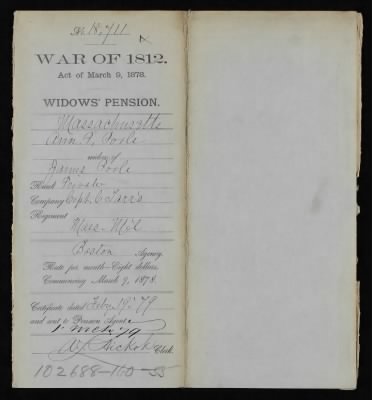 No. 18,711
WAR OF 1812.
Act of March 9, 1878.
WIDOWS' PENSION.
Massachusetts
Ann P. Poole
widow of
James Poole
Rank Private
Company Capt. C. Tarr's
Regiment
Mass. Mil
Boston Agency.
Rate per month—Eight dollars,
Commencing March 9, 1878.
Certificate dated Feby 19, 79
and sent to Pension Agent
Clerk.
102688-100-55